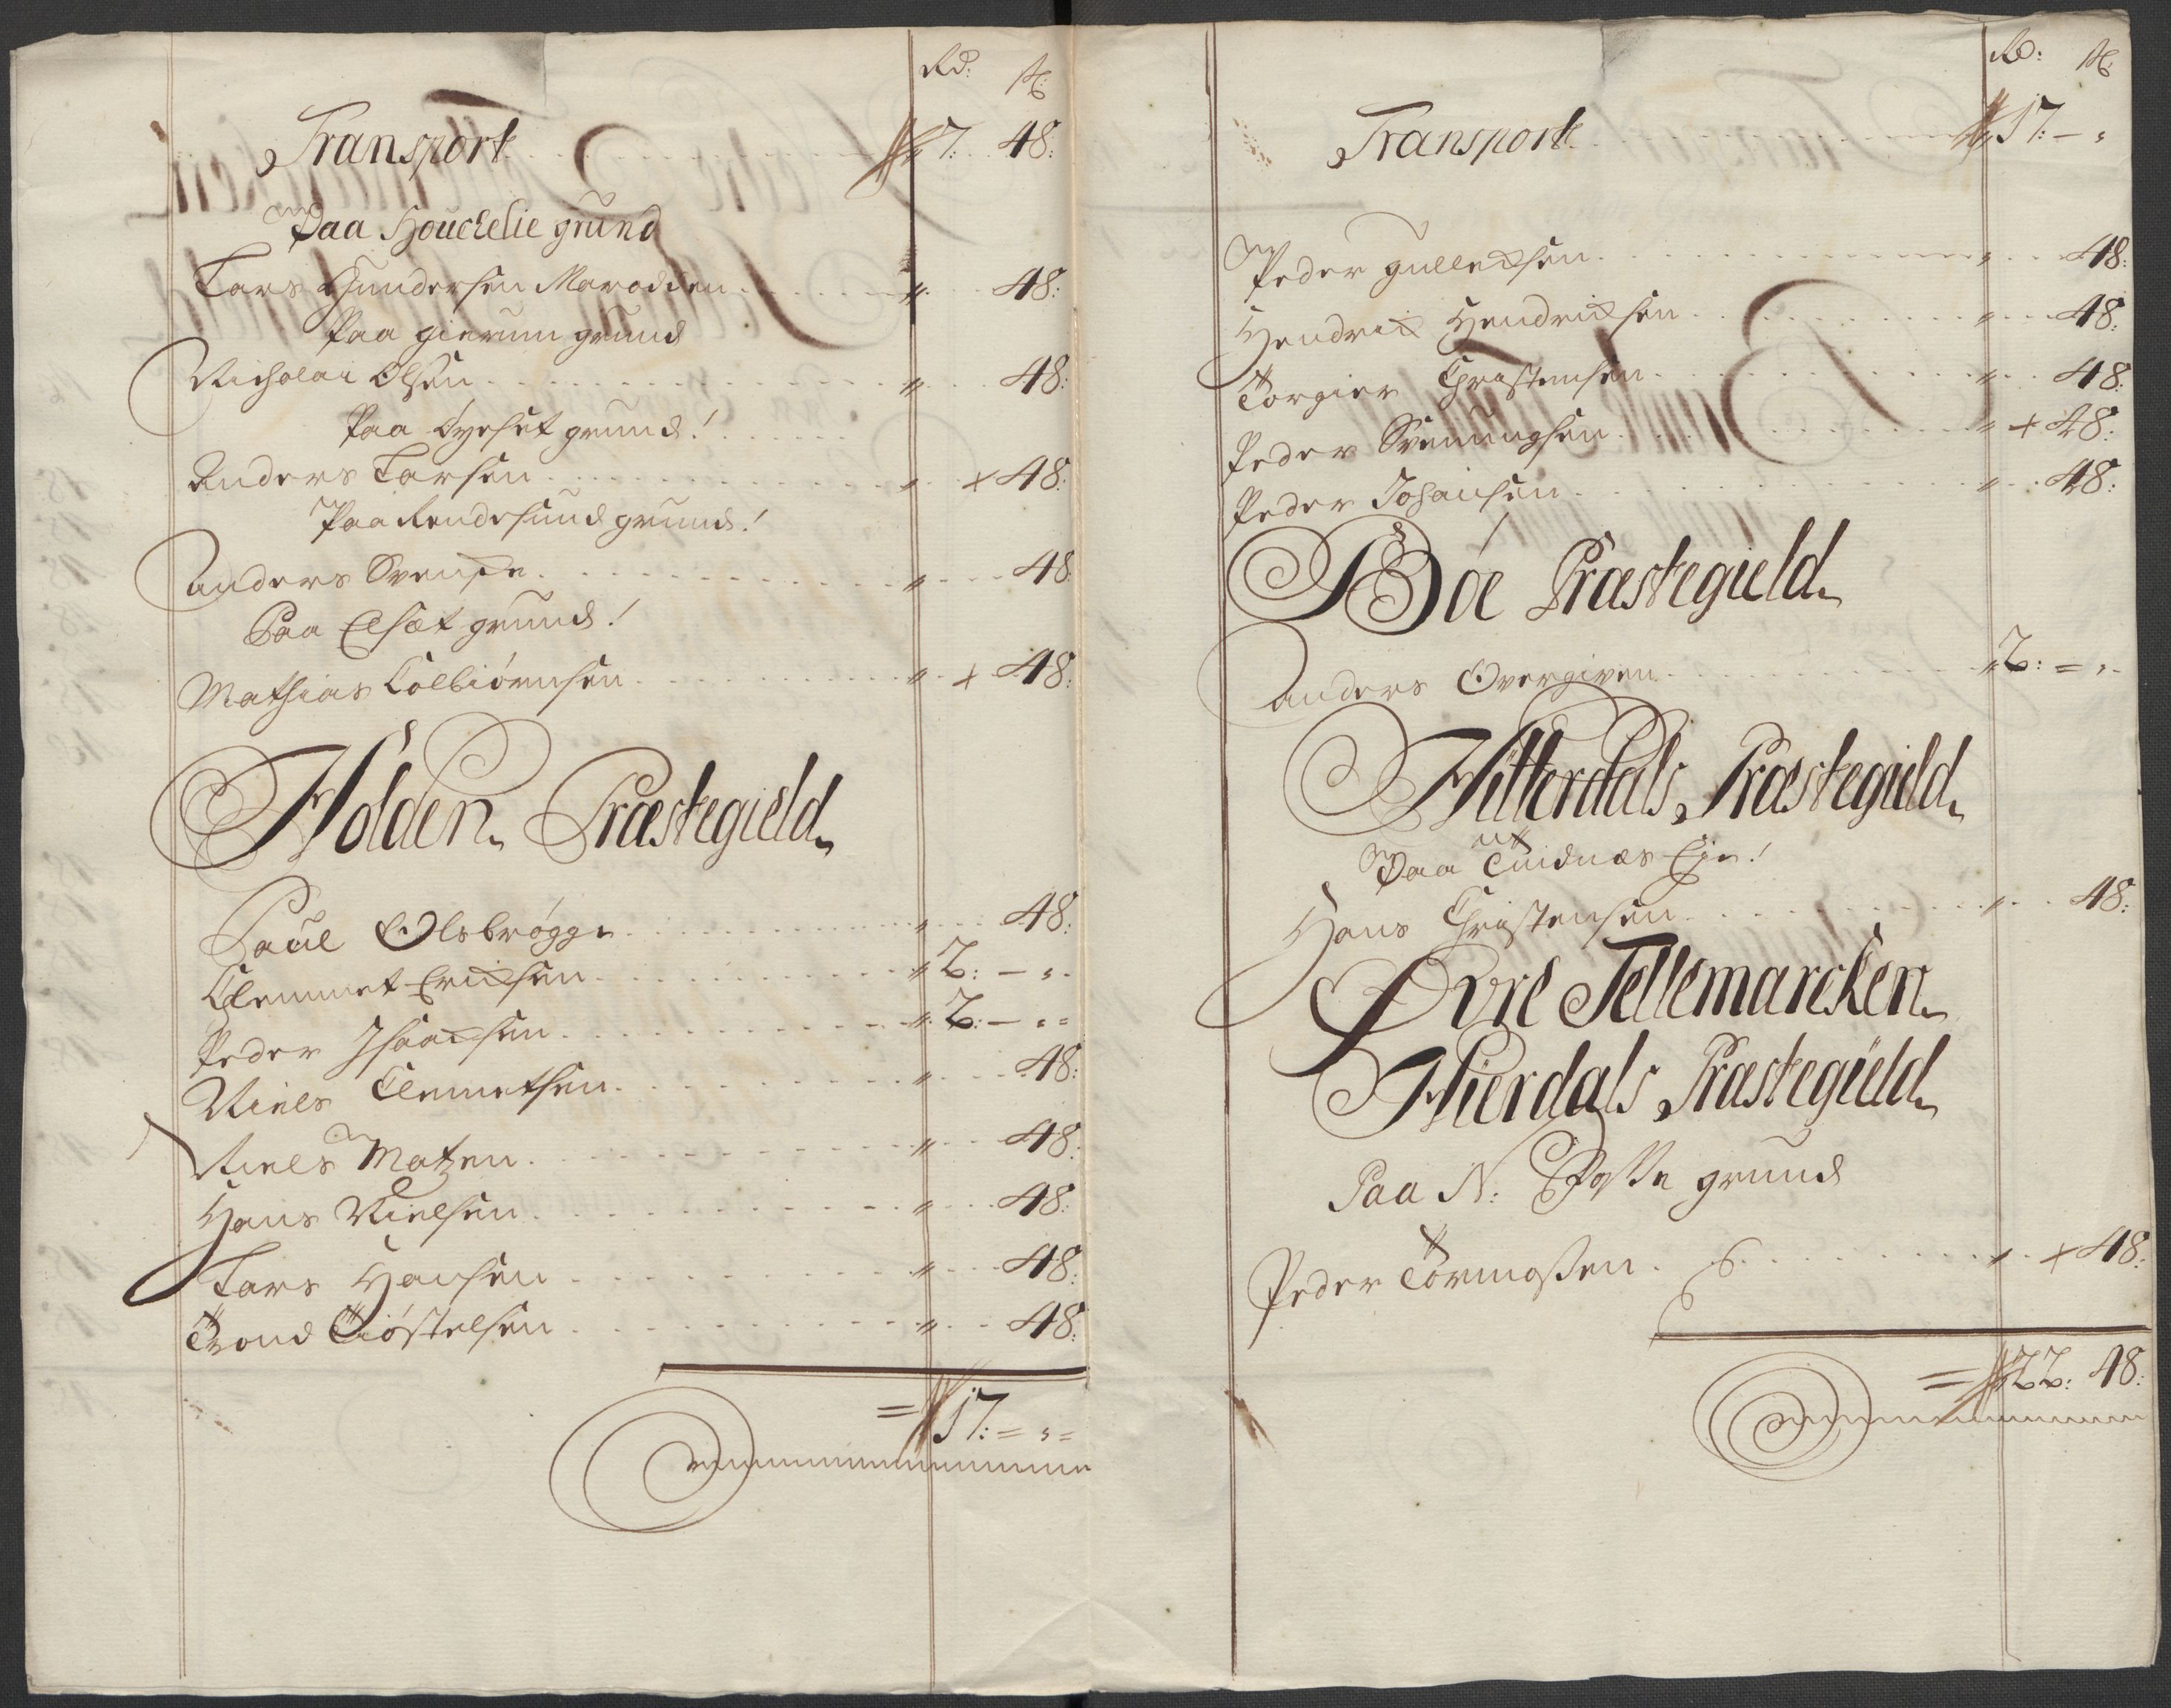 Rd: ß:
Transport 7: 48:
Paa Houckelie grund
Lars Gundersen Marodden 48:
Paa gierum grund
Nicholai Olsen 48:
Paa Øyeset grund!
Anders Larsen + 48:
Paa Rendesund grund!
Anders Svensen 48
Paa Elset grund!
Mathias Colbiörnsen + 48:
Holden Præstegield
Paul Olsbrögge 48:
Clemmet Erichsen 2: – „
Peder Isaachsen 2: – „
Niels Clemetsen 48:
Niels Matzen 48:
Hans Nielsen 48:
Lars Hansen 48:
Trond Kiöstelsen 48:
= 17: = „ =
Rd: ß:
Transport 17: – „
Peder gullechsen 48:
Hendrich Hendrichsen 48:
Torgier Christensen 48:
Peder Svenungsen + 48:
Peder Johansen 48:
Böe Præstegield
Anders Overgiven 2: = „
Hitterdals Præstegield
Paa Tuidnæs Eje!
Hans Christensen 48:
Øvre Tellemarcken
Hierdals Præstegield
Paa N: grund
Peder Tormosen + 48:
= 22: 48: